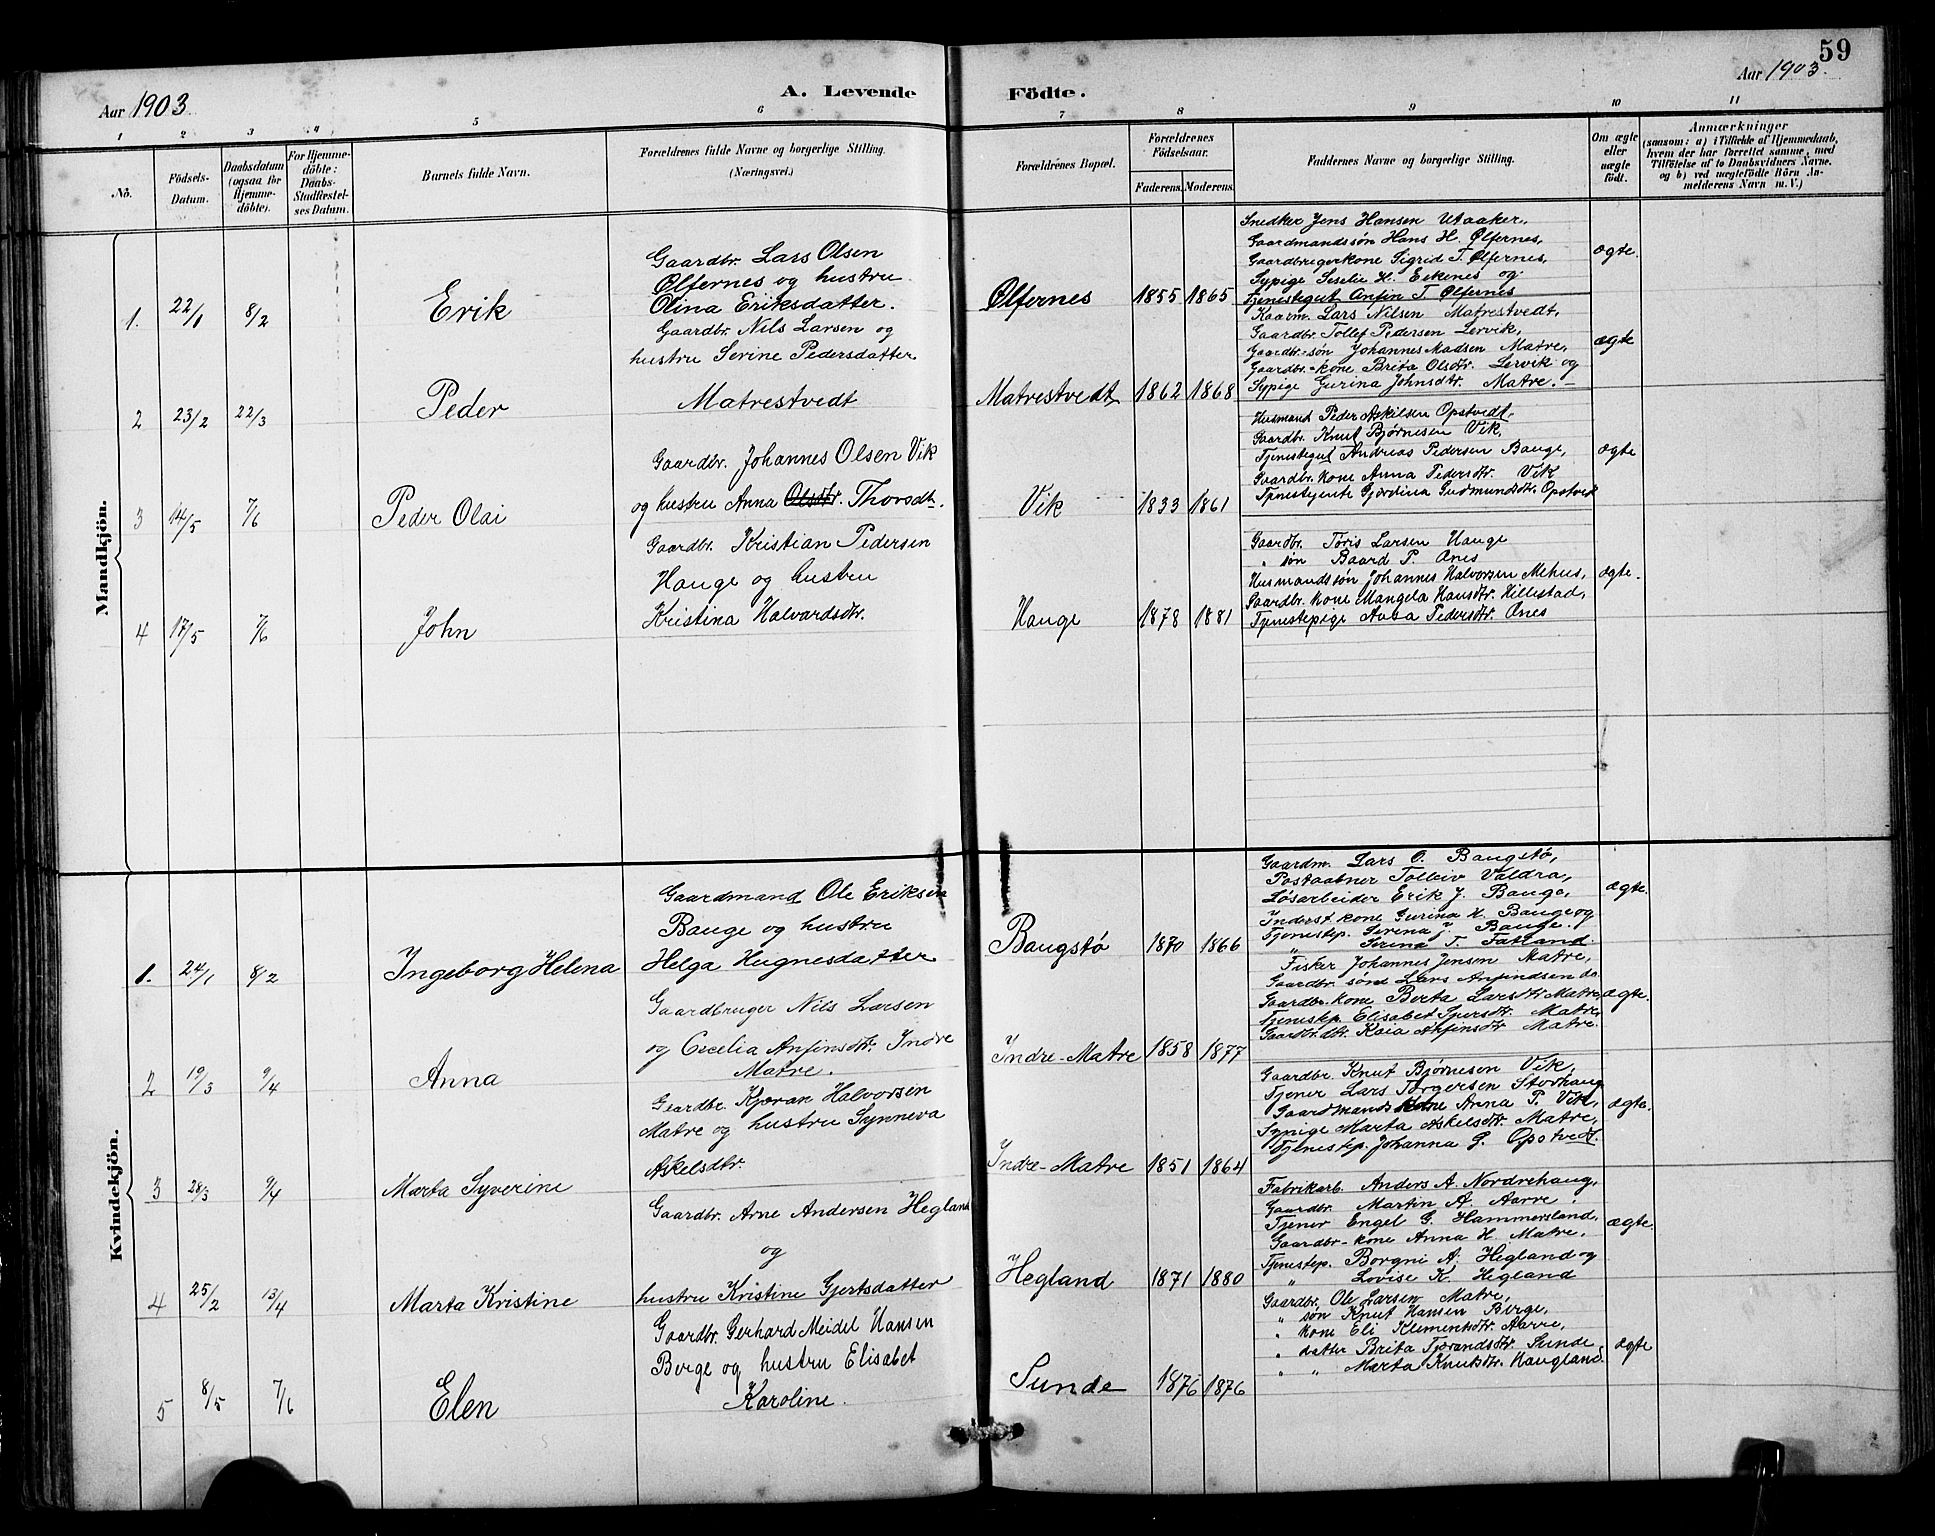 59
Aar 1903.
A. Levende
Födte.
Aar 1903.
1
2
3
4
5
6
7
8
9
10
11
No.
Födsels-
Datum.
Daabsdatum
(ogsaa for
Hjemme-
döbte).
For Hjemme-
döbte:
Daabs-
Stadfæstel-
ses Datum.
Barnets fulde Navn.
Forældrenes fulde Navne og borgerlige Stilling.
(Næringsvei.)
Forældrenes Bopæl.
Forældrenes
Födselsaar.
Faderens.
Moderens.
Faddernes Navne og borgerlige Stilling.
Om ægte
eller
uægte
födt.
Anmærkninger
(saasom: a) i Tilfælde af Hjemmedaab,
hvem der har forrettet samme, med
Tilföielse af to Daabsvidners Navne,
og b) ved uægtefödte Börn An-
melderens Navn m. V.)
Mandkjön.
1.
22/1
8/2
Erik
Gaardbr. Lars Olsen
Ølfernes og hustru
Olina Eriksdatter.
Ølfernes
1855
1865
Snedker Jens Hansen Utaaker,
Gaardmandssøn Hans H. Ølfernes,
Gaardbrugerkone Sigrid T. Ølfernes,
Sypige Seselie H. Eikenes og
Tjenestegut Anfin T. Ølfernes
ægte.
2
23/2
22/3
Peder
Gaardbr. Nils Larsen og
hustru Serine Pedersdatter
Matrestvedt
Matrestvedt
1862
1868
Kaarm. Lars Nilsen Matrestvedt,
Gaardbr. Tollef Pedersen Lervik,
Gaardbr.-søn Johannes Madsen Matre,
Gaardbr.-kone Brita Olsdtr. Lervik og
Sypige Gurina Johnsdtr. Matre.
ægte
3
14/5
7/6
Peder Olai
Gaardbr. Johannes Olsen Vik
og hustru Anna Olsdtr. Thorsdtr.
Vik
1833
1861
Husmand Peder Askilsen Opstvedt,
Gaardbr. Knut Bjørnesen Vik,
Tjenestegut Andreas Pedersen Bauge,
Gaardbr. kone Anna Pedersdtr. Vik
Tjenestejente Gjordina Gudmundsdtr. Opstvedt
ægte
4
17/5
7/6
John
Gaardbr. Kristian Pedersen
Hauge og hustru
Kristina Halvardsdtr.
Hauge
1878
1881
Gaardbr. Toris Larsen Hauge
" søn Baard P. Ones
Husmandssøn Johannes Halvorsen Mehus,
Gaardbr. kone Mangela Hansdtr. Hillestad,
Tjenestepige Aasa Pedersdtr. Ones
ægte.
Kvindekjön.
1.
24/1
8/2
Ingeborg Helena
Gaardmand Ole Eriksen
Bauge og hustru
Helga Hugnesdatter
Baugstø
1870
1866
Gaardm. Lars O. Baugstø,
Postaabner Tolleiv Valdra,
Løsarbeider Erik J. Bauge,
Inderst kone Gurina H. Bauge og
Tjenestep. Serina J. Bauge.
" Serina T. Fatland
ægte.
2
19/3
9/4
Anna
Gaardbruger Nils Larsen
og Cecelia Anfinsdtr. Indre
Matre.
Indre-Matre
1858
1877
Fisker Johannes Jensen Matre,
Gaardbr. sønd Lars Anfindsen do
Gaardbr. kone Berta Larsdtr Matre,
Tjenestep. Elisabet Sjursdtr. Matre,
Gaardbr.dtr. Kaia Anfinsdtr Matre.
ægte.
3
28/3
9/4
Marta Syverine
Geardbr. Kjøran Halvorsen
Matre og hustru Synneva
Askelsdtr.
Indre-Matre
1851
1864
Gaardbr. Knut Bjørnesen Vik,
Tjener Lars Torgersen Storhaug
Gaardmands kone Anna P. Vik,
Sypige Marta Askelsdtr. Matre,
Tjenestep. Johanna G. Opstvedt.
ægte.
4
25/2
13/4
Marta Kristine
Gaardbr. Arne Andersen Hegland
og
hustru Kristine Gjertsdatter
Hegland
1871
1880
Fabrikarb. Anders A. Nordrehaug,
Gaardbr. Martin A. Aarre,
Tjener Engel G. Hammersland,
Gaardbr-kone Anna H. Matre,
Tjenestep. Borgni A. Hegland og
" Lovise K. Hegland
ægte.
5
8/5
7/6
Elen
Gaardbr. Gerhard Meidel Hansen
Berge og hustru Elisabet
Karoline.
Sunde
1876
1876
Gaardbr. Ole Larsen Matre,
" søn Knut Hansen Berge,
" kone Eli Klemensdtr. Aarre,
" datter Brita Tjørandsdtr. Sunde,
" " Marta Knutsdtr. Haugland.
ægte